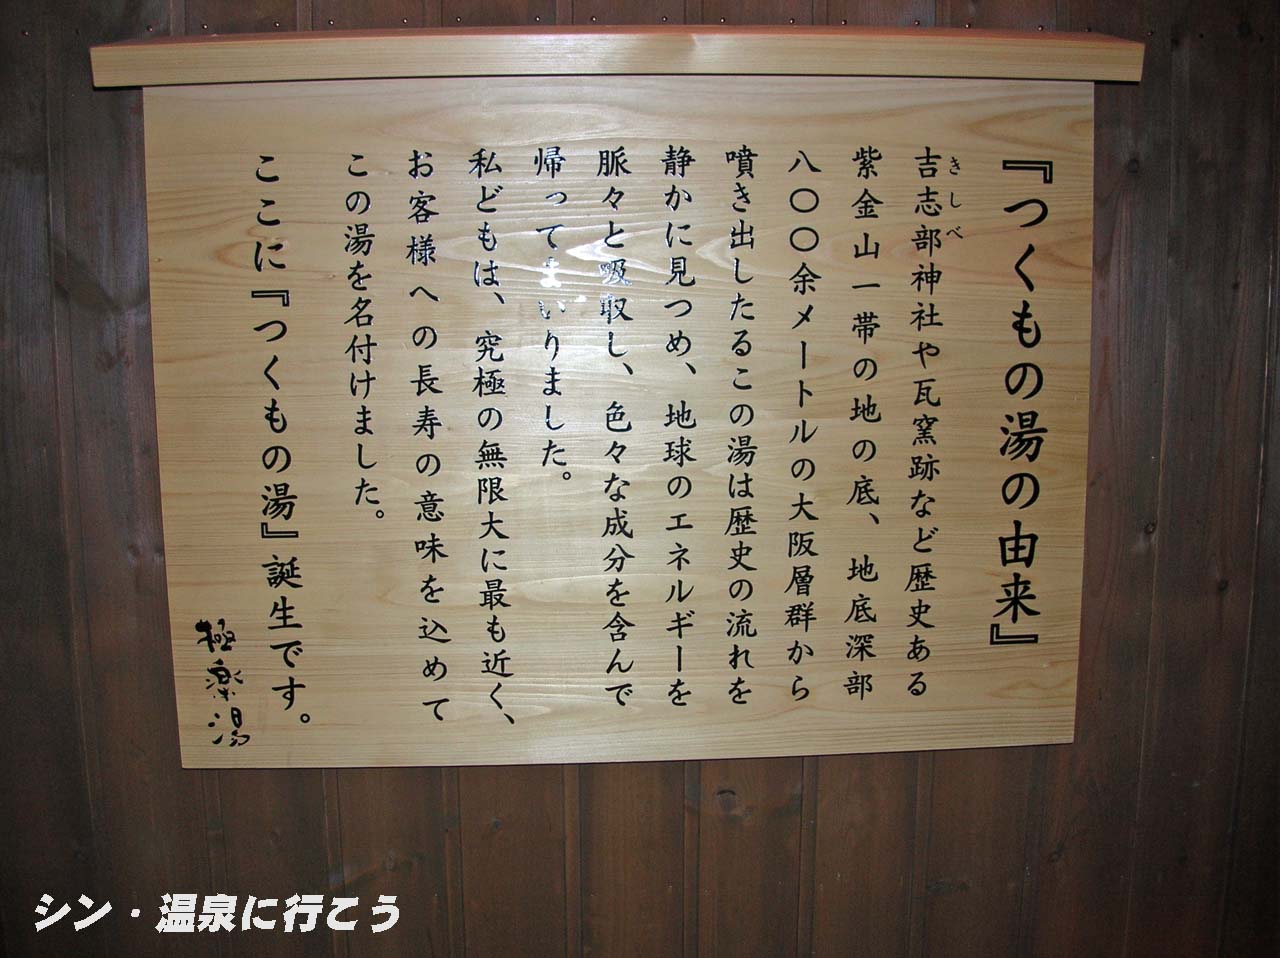 『つくもの湯の由来』
吉志部神社や瓦窯跡など歴史ある
きしべ
紫金山一帯の地の底、地底深部
八〇〇余メートルの大阪層群から
噴き出したるこの湯は歴史の流れを
静かに見つめ、地球のエネルギーを
脈々と吸収し、色々な成分を含んで
帰ってまいりました。
私どもは、究極の無限大に最も近く、
お客様への長寿の意味を込めて
この湯を名付けました。
ここに『つくもの湯』誕生です。
極楽湯
シン・温泉に行こう